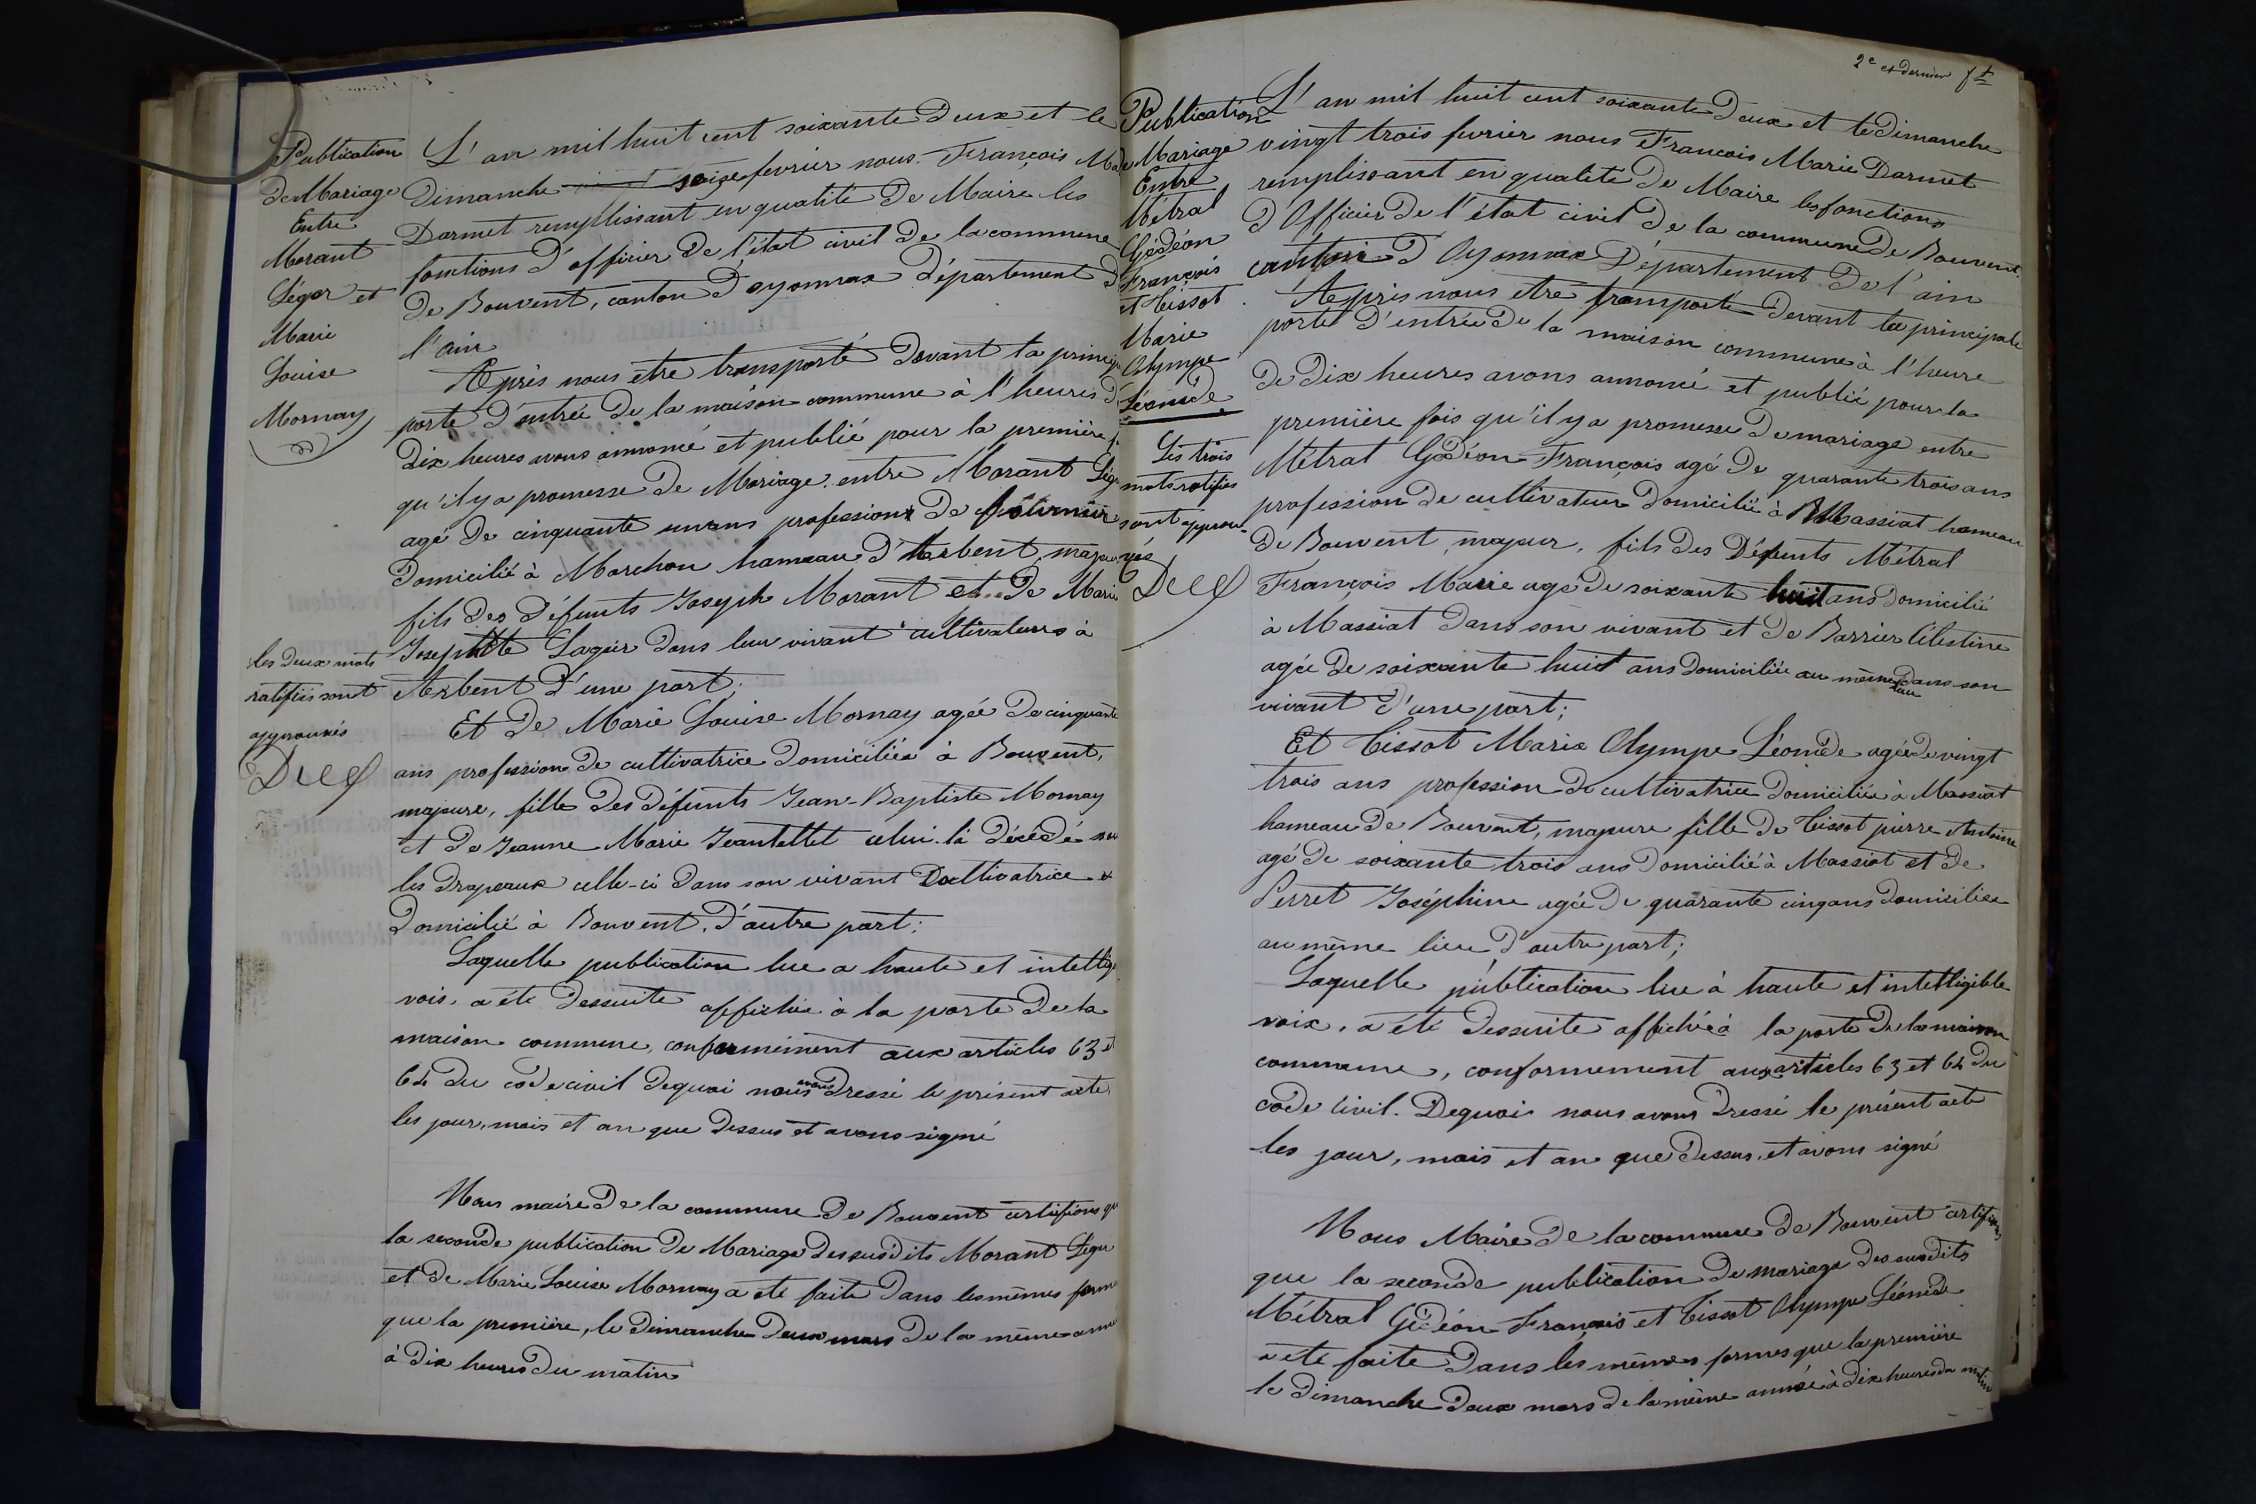 Publication
de Mariage
Entre
Morant
Léger et
Marie
Louise
Mornay
les deux mots
ratifiés sont
approuvés
L'an mil huit cent soixante deux et le
Dimanche seize fevrier nous François M
Darmet remplissant en qualité de Maire les
fonctions d'officier de l'état civil de la commune
de Bouvent, canton d'oyonnax département d
l'ain
Après nous être transporté devant la princip
porte d'entrée de la maison commune à l'heures d
dix heures avons annoncé et publié pour la première f
qu'il y a promesse de Mariage entre Morant Lég
agé de cinquante un ans profession de
domicilié à Marchon hameau d'Arbent, majeur
fils des défunts Joseph Morant et de Marie
Josephtte Lagier dans leur vivant cultivateurs à
Arbent d'une part;
Et de Marie Louise Mornay agée de cinquante
ans profession de cultivatrice domiciliée à Bouvent,
majeure, fille des défunts Jean-Baptiste Mornay
et de Jeanne Marie Jeantellet celui-là décédé sou
les drapeaux celle-ci dans son vivant Cultivatrice &
domicilié à Bouvent, d'autre part;
Laquelle publication lue a haute et intellig
voix, a été dessuite affichée à la porte de la
maison commune, conformément aux articles 63 et
64 du code civil dequoi nous avons dressé le présent acte
les jour, mois et an que dessus et avons signé
Nous maire de la commune de Bouvent certifions qu
la seconde publication de Mariage dessusdits Morant Léger
et de Marie Louise Mornay a été faite dans les mêmes forme
que la première, le dimanche deux mars de la même anné
à dix heures du matin
2e et dernier ft
Publication
de Mariage
Entre
Métral
Gédéon
François
et Tissot
Marie
Olympe
Léonide
Les trois
mots ratifiés
sont approu-
vés
L'an mil huit cent soixante deux et le dimanche
vingt trois fevrier nous François Marie Darmet
remplissant en qualité de Maire les fonctions
d'Officier de l'état civil de la commune de Bouvent
canton d'Oyonnax Département de l'ain
Après nous être transporté devant la principale
porte d'entrée de la maison commune à l'heure
de dix heures avons annoncé et publié pour la
première fois qu'il y a promesse de mariage entre
Métral Gédéon François agé de quarante trois ans
profession de cultivateur domicilié à Massiat hameau
de Bouvent, majeur, fils des défunts Métral
François Marie age de soixante huit ans domicilié
à Massiat dans son vivant et de Barrier Célestine
agée de soixante huit ans domiciliée au même lieu dans son
vivant d'une part;
Et Tissot Marie Olympe Léonide agée de vingt
trois ans profession de cultivatrice domiciliée à Massiat
hameau de Bouvent, majeure fille de Tissot pierre Antoine
agé de soixante trois ans domicilié à Massiat et de
Perret Joséphine agée de quarante cinq ans domiciliée
au même lieu d'autre part;
Laquelle publication lue à haute et intelligible
voix, a été dessuite affichée à la porte de la maison
commune, conformement aux articles 63 et 64 du
code civil. Dequoi nous avons dressé le présent acte
les jour, mois et an que dessus, et avons signé
Nous Maire de la commune de Bouvent certifions
que la seconde publication de mariage des susdits
Métral Gédéon François et Tissot Olympe Léonide
a été faite dans les mêmes formes que la première
le dimanche deux mars de la même année à dix heures du matin